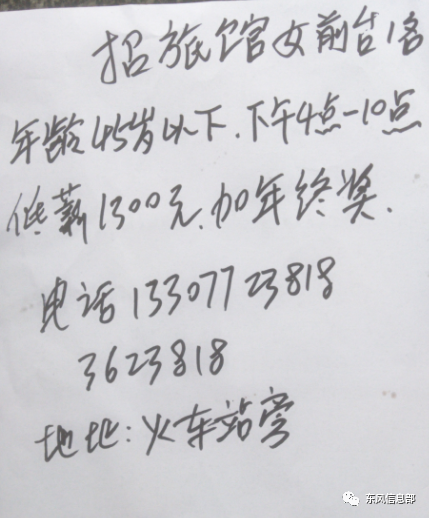 招旅馆女前台1名
年龄45岁以下.下午4点-10点
底薪1300元.加年终奖.
电话13307723818
3623818
地址:火车站旁
东风信息部